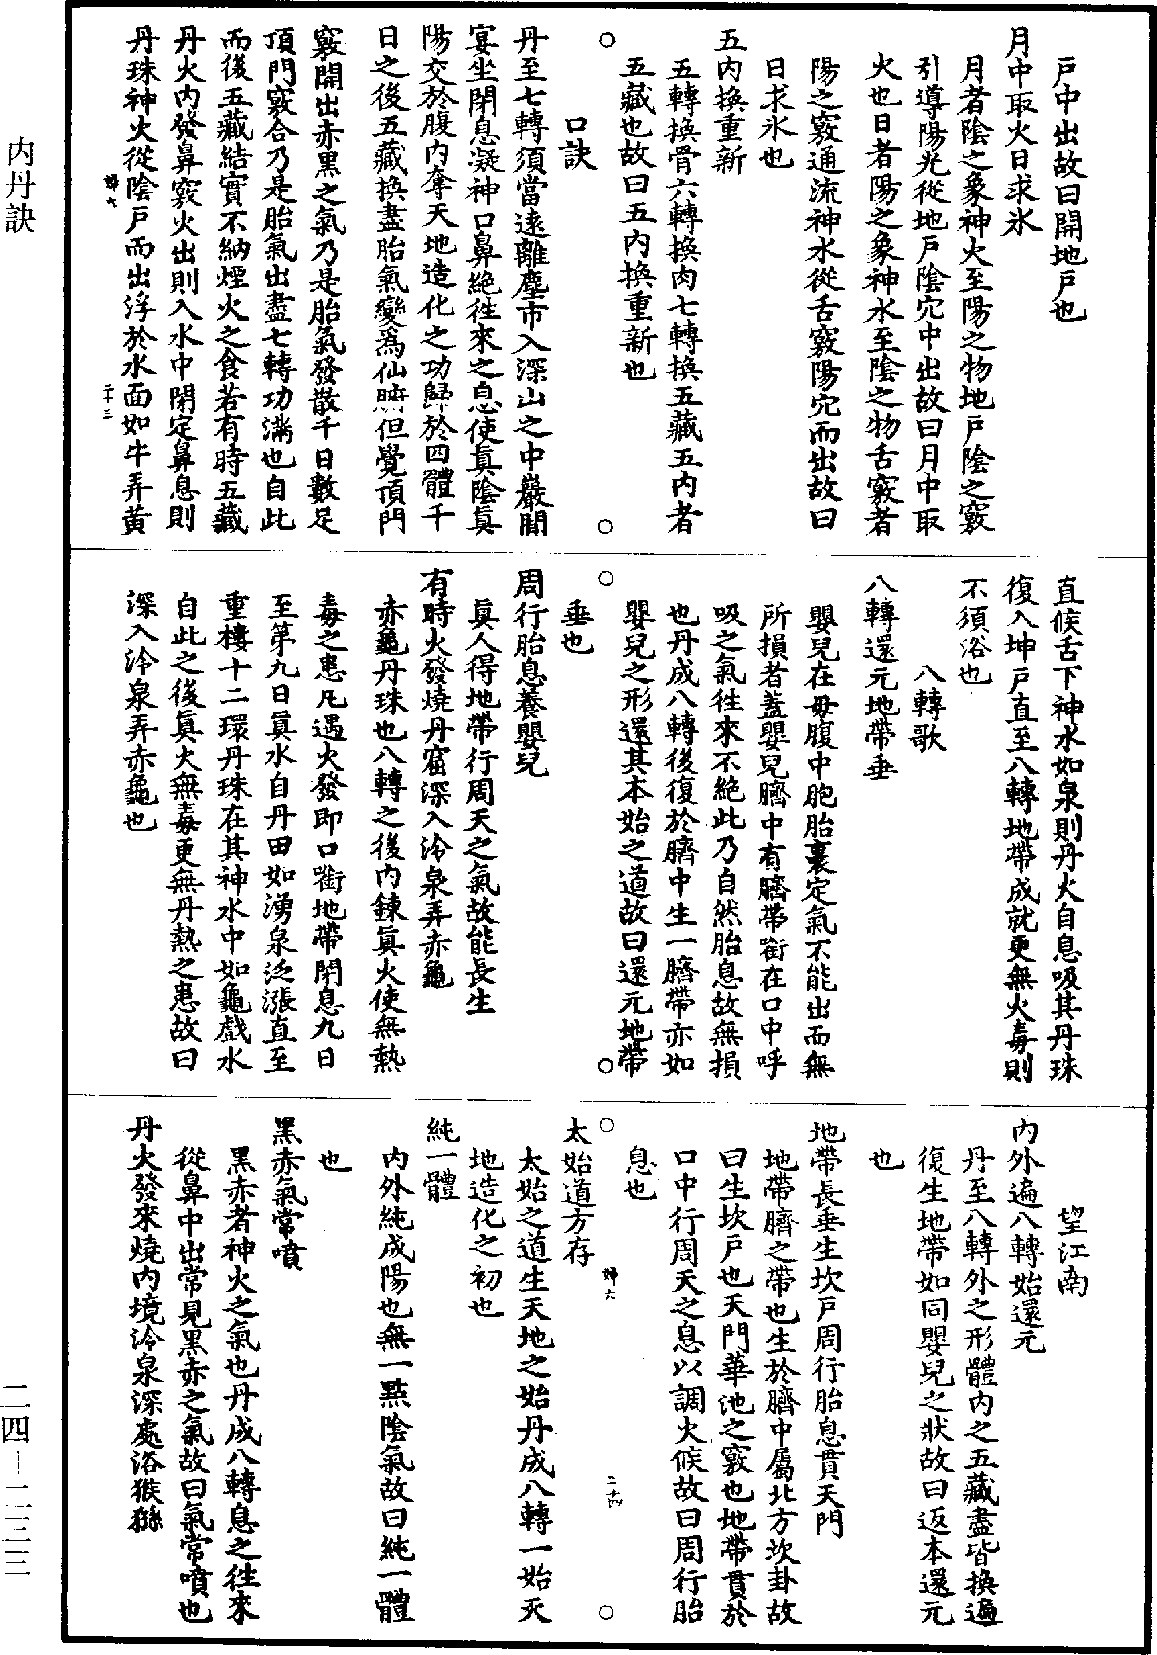 戸中出故曰開地戸也
月中取火日求氷
月者陰之象神火至陽之物地戸陰之竅
引導陽光從地戸陰穴中出故曰月中取
火也日者陽之象神水至陰之物舌竅者
陽之竅通流神水從舌竅陽穴而出故曰
日求氷也
五内換重新
五轉換骨六轉換肉七轉換五藏五内者
五藏也故曰五内換重新也
口訣
丹至七轉須當遠離塵市入深山之中巖間
宴坐閉息凝神口鼻絶往來之息使眞陰眞
陽交於腹内奪天地造化之功歸於四體千
日之後五藏換盡胎氣變爲仙腑但覺頂門
竅開出赤黑之氣乃是胎氣發散千日數足
頂門竅合乃是胎氣出盡七轉功滿也自此
而後五藏結實不納煙火之食若有時五藏
丹火内發鼻竅火出則入水中閉定鼻息則
丹珠神火從陰戸而出浮於水面如牛弄黄
婦六
二十三
直候舌下神水如泉則丹火自息吸其丹珠
復入坤戸直至八轉地帶成就更無火毒則
不須浴也
八轉歌
八轉還元地帶垂
嬰兒在母腹中胞胎裏定氣不能出而無
所損者蓋嬰兒臍中有臍帶銜在口中呼
吸之氣往來不絶此乃自然胎息故無損
也丹成八轉後復於臍中生一臍帶亦如
嬰兒之形還其本始之道故曰還元地帶
垂也
周行胎息養嬰兒
眞人得地帶行周天之氣故能長生
有時火發燒丹窟深入冷泉弄赤龜
赤龜丹珠也八轉之後内鍊眞火使無熱
毒之患凡遇火發即口銜地帶閉息九日
至第九日眞水自丹田如湧泉泛漲直至
重樓十二環丹珠在其神水中如龜戲水
自此之後眞火無毒更無丹熱之患故曰
深入冷泉弄赤龜也
望江南
内外遍八轉始還元
丹至八轉外之形體内之五藏盡皆換遍
復生地帶如同嬰兒之狀故曰返本還元
也
地帶長垂生坎戸周行胎息貫天門
地帶臍之帶也生於臍中屬北方坎卦故
曰生坎戸也天門華池之竅也地帶貫於
口中行周天之息以調火候故曰周行胎
息也
婦六
二十四
太始道方存
太始之道生天地之始丹成八轉一始天
地造化之初也
純一體
内外純成陽也無一點陰氣故曰純一體
也
黑赤氣常噴
黑赤者神火之氣也丹成八轉息之往來
從鼻中出常見黑赤之氣故曰氣常噴也
丹火發來燒内境冷泉深處浴猴猻
内丹訣
二四－二三三